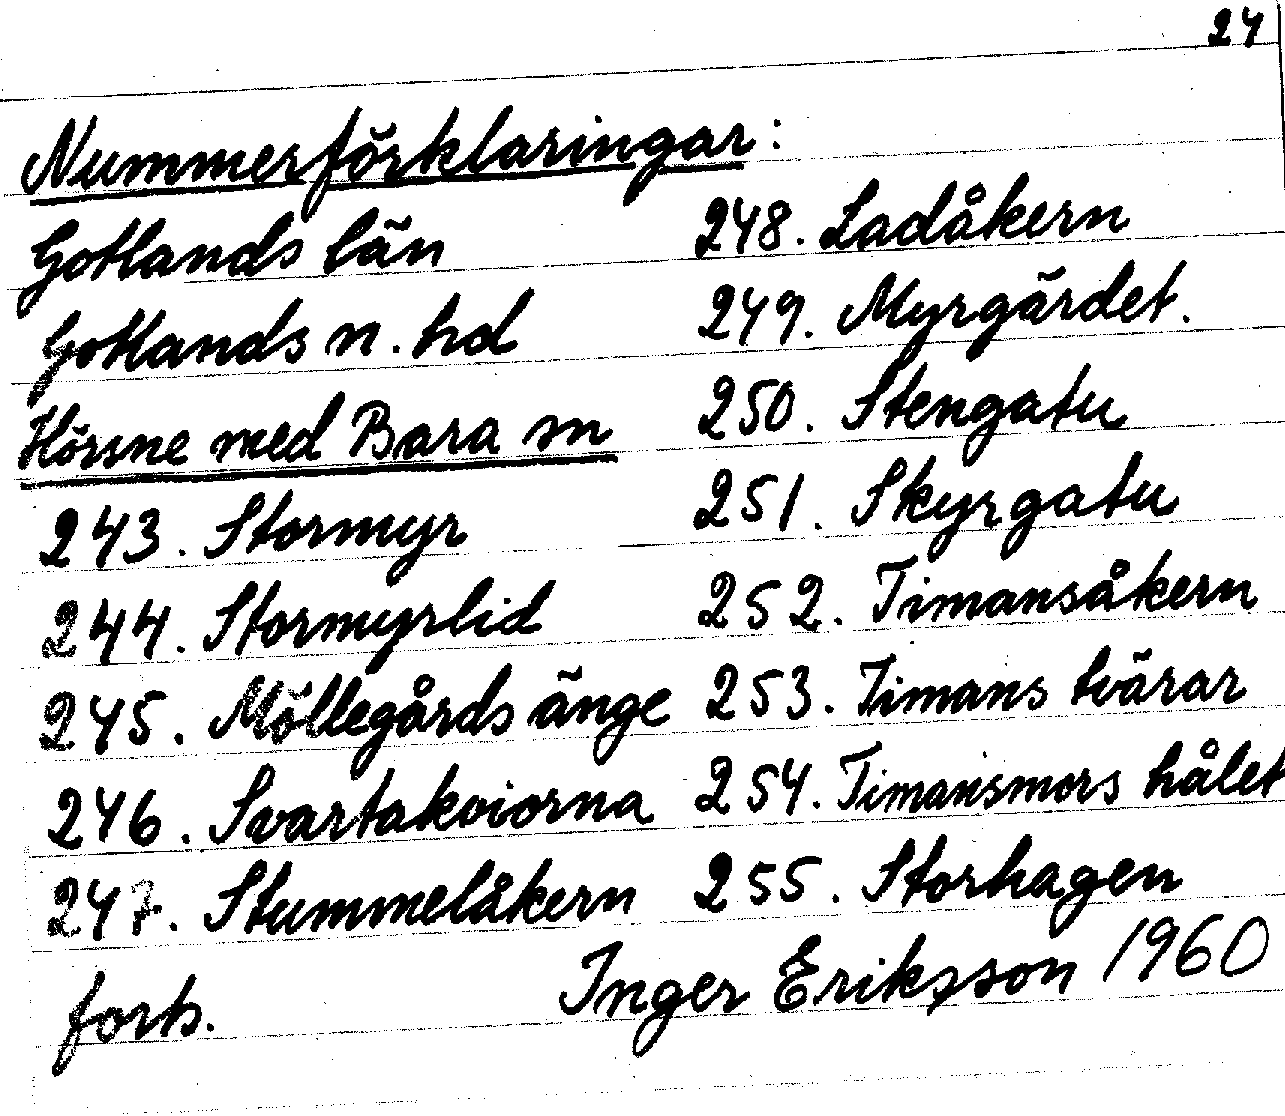 24
Nummerförklaringar:
Gotlands län
Gotlands n. hd
Hörsne med Bara sn
243. Stormyr
244. Stormyrlid
245. Möllegårds änge
246. Svartakviorna
247. Stummelåkern
248. Ladåkern
249. Myrgärdet.
250. Stengatu
251. Skyrgatu
252. Timansåkern
253. Timans tvärar
254. Timansmors hålet
255. Storhagen
forts.
Inger Eriksson 1960